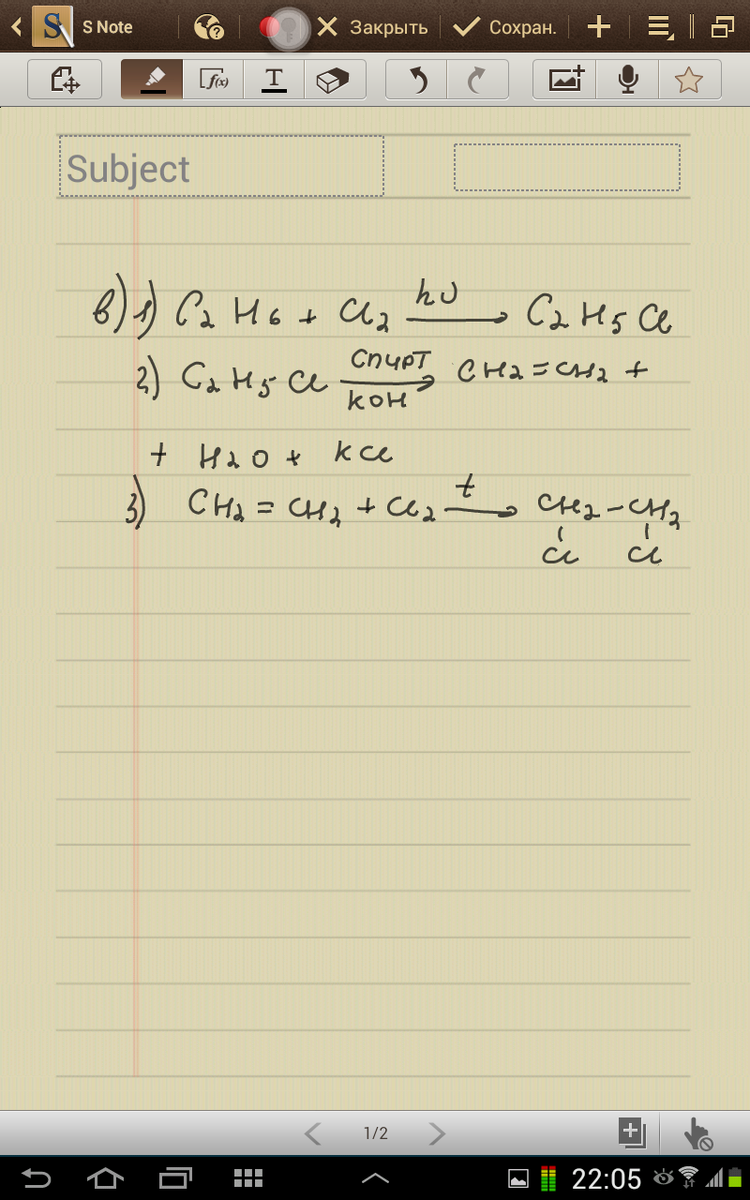 S Note
Закрыть
Сохран.
f(x)
T
Subject
в) 1) C2H6 + Cl2 hν → C2H5Cl
2) C2H5Cl спирт KOH → CH2=CH2 +
+ H2O + KCl
3) CH2=CH2 + Cl2 t → CH2-CH2
Cl Cl
1/2
22:05